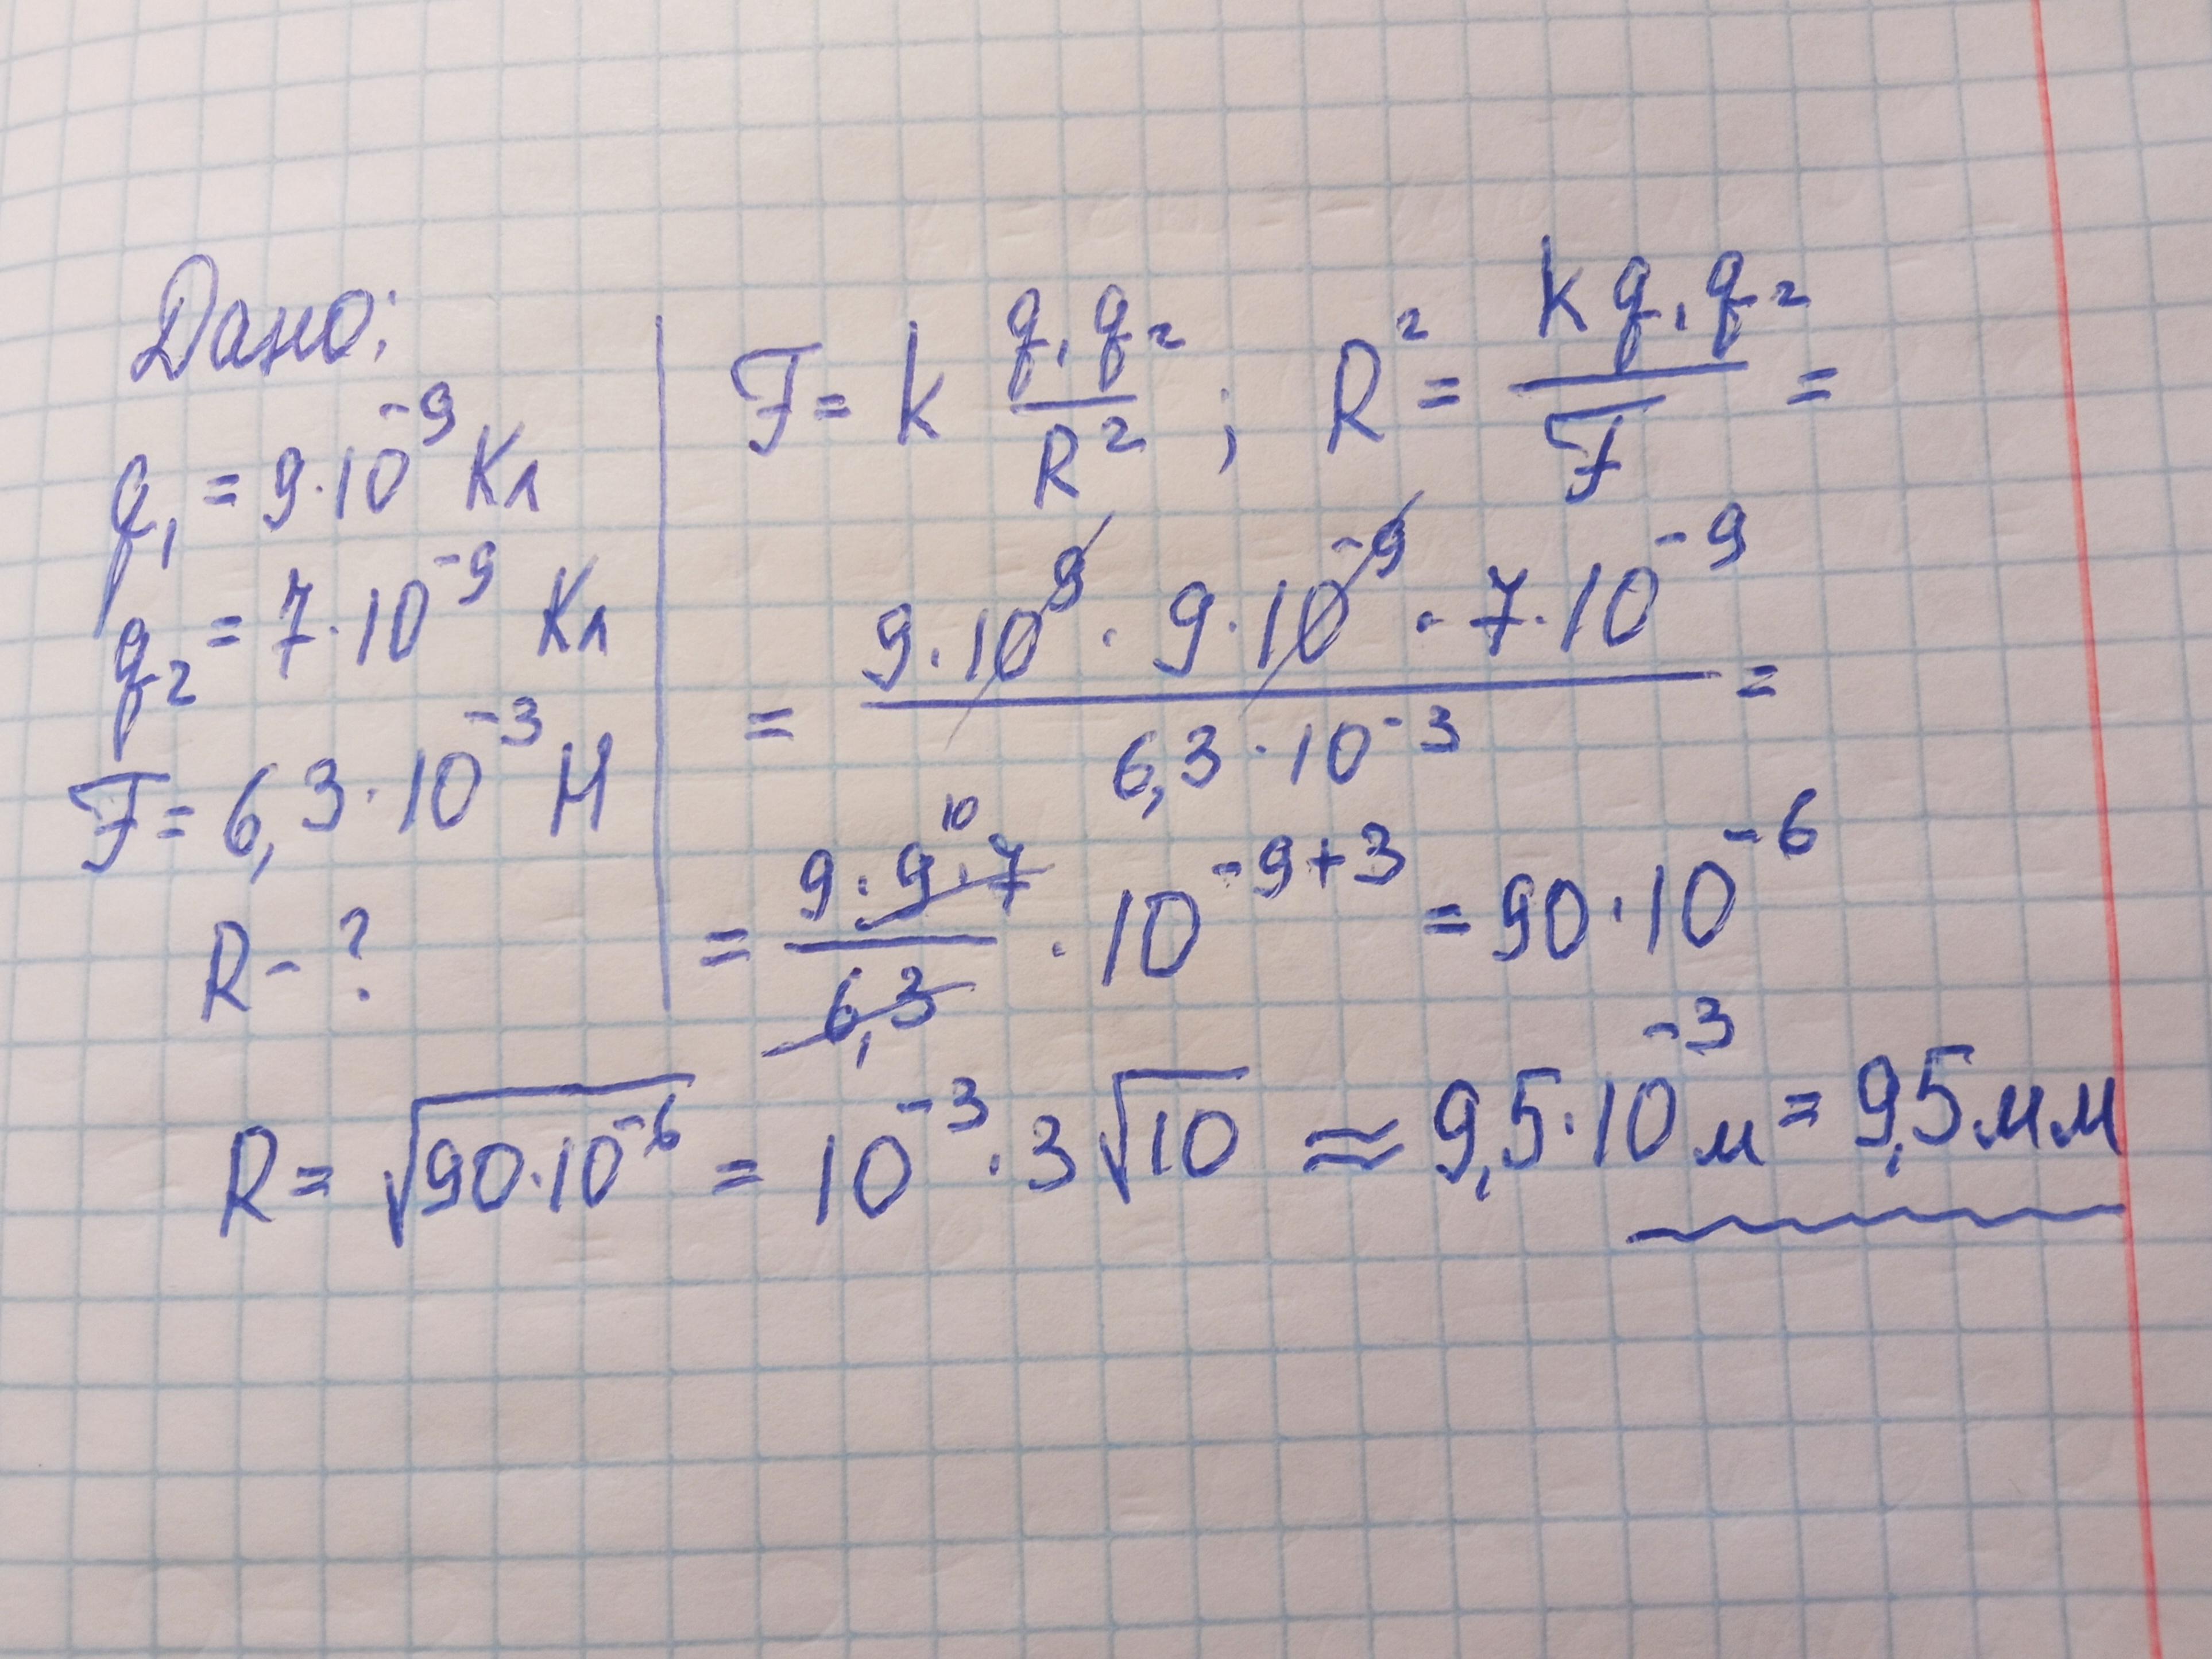 Дано:
q₁ = 9·10⁻⁹ Кл
q₂ = 7·10⁻⁹ Кл
F = 6,3·10⁻³ Н
R - ?
F = k q₁q₂/R² ; R² = kq₁q₂/F =
= 9·10⁹ · 9·10⁻⁹ · 7·10⁻⁹ / 6,3·10⁻³ =
= 9·9·7 10 / 6,3 · 10⁻⁹⁺³ = 90·10⁻⁶
R = √(90·10⁻⁶) = 10⁻³ · 3√10 ≈ 9,5·10⁻³ м = 9,5 мм